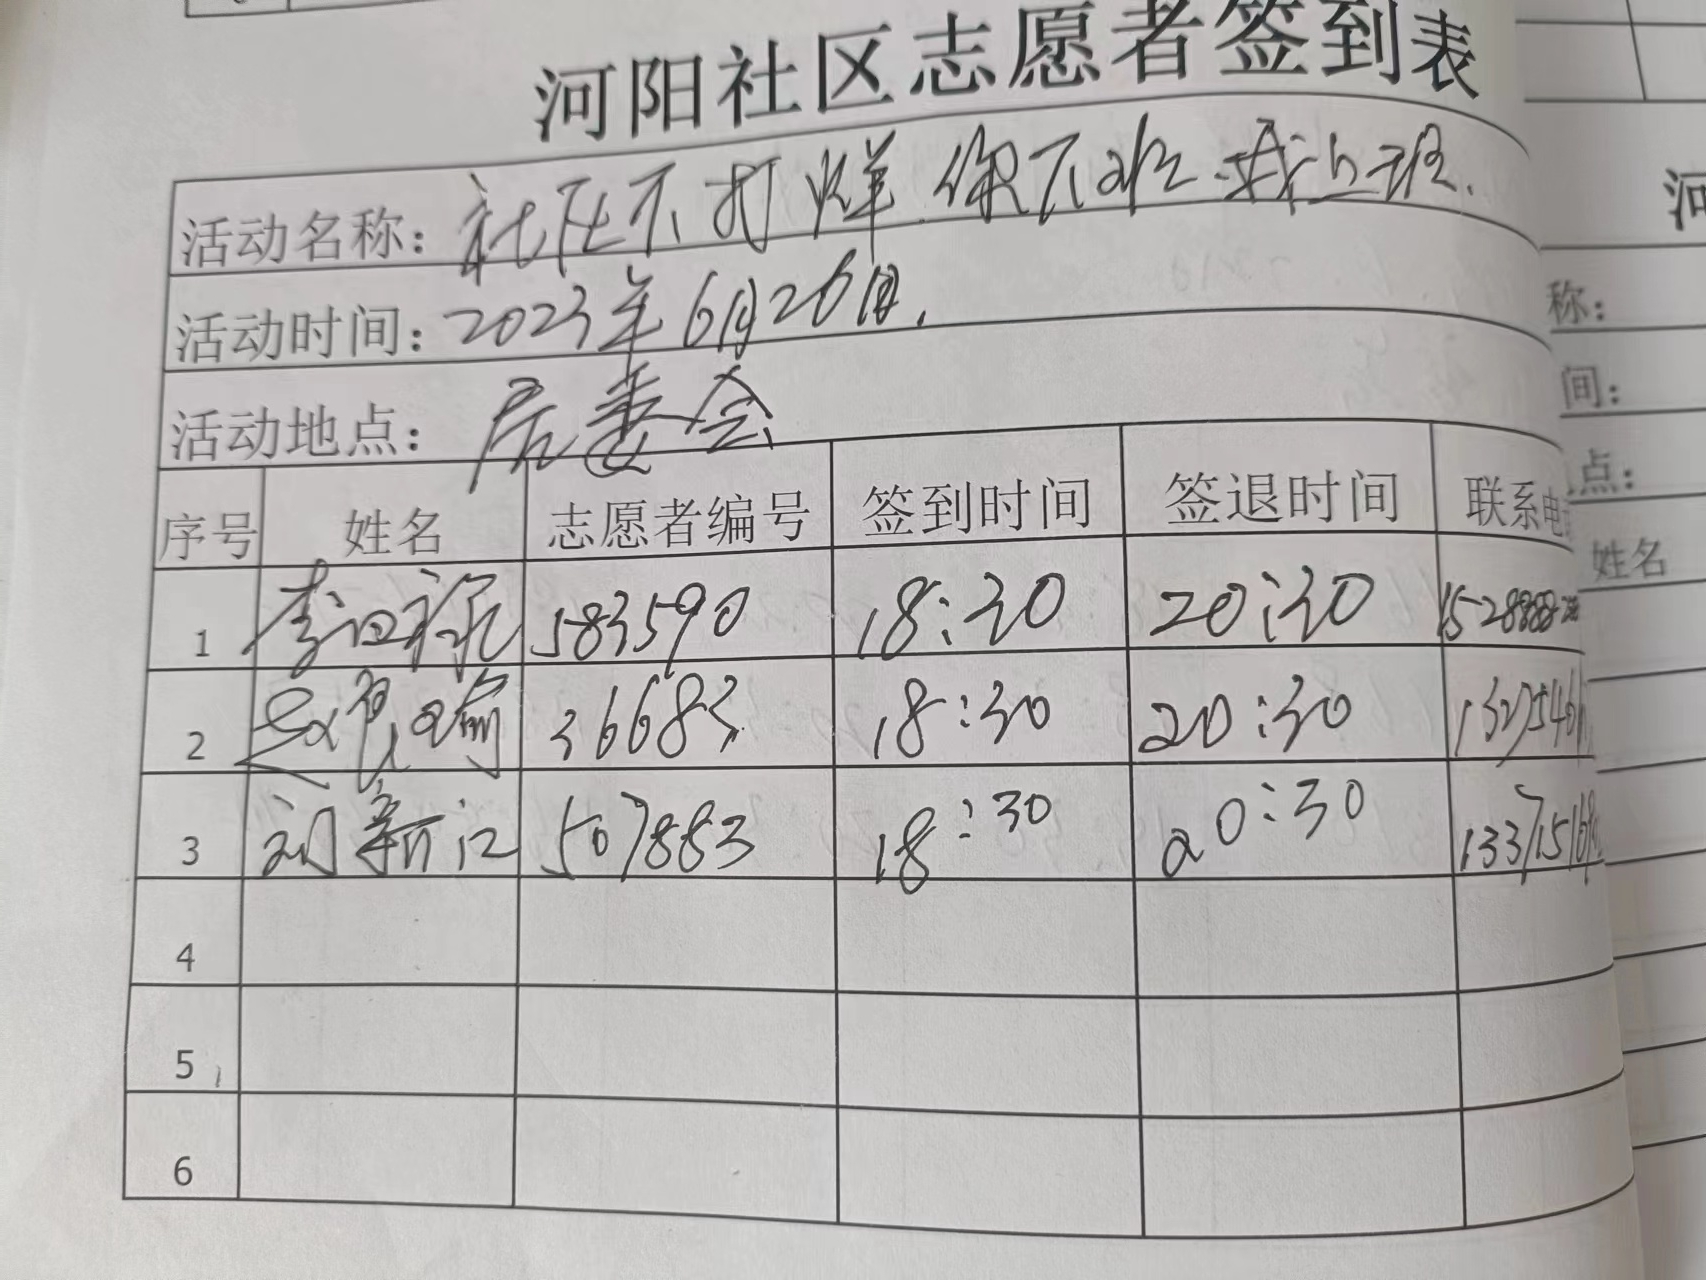 河阳社区志愿者签到表
活动名称：社区不打烊 你下班 我上班.
活动时间：2023年6月26日.
活动地点：居委会
序号 姓名 志愿者编号 签到时间 签退时间 联系电
1 583590 18:30 20:30
2 36683 18:30 20:30
3 刘新江 507883 18:30 20:30
4
5
6
河
称：
间：
点：
姓名